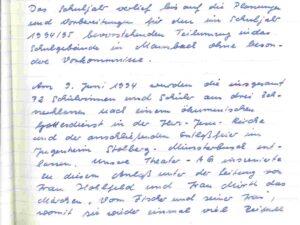 Das Schuljahr verlief bis auf die Planungen
und Vorbereitungen für den im Schuljahr
1994/95 bevorstehenden Teilumzug in das
Schulgebäude in Mausbach ohne beson-
dere Vorkommnisse.
Am 9. Juni 1994 wurden die insgesamt
72 Schülerinnen und Schüler aus drei
nach einem ökumenischen
Gottesdienst in der Herz-Jesu-Kirche
und der anschließenden Entlaßfeier im
Jugendheim Stolberg-Münsterbusch ent-
lassen. Unsere Theater-AG inszenierte
zu diesem Anlaß unter der Leitung von
Frau und Frau das
Märchen "Vom Fischer und seiner Frau",
womit sie wieder einmal viel Beifall